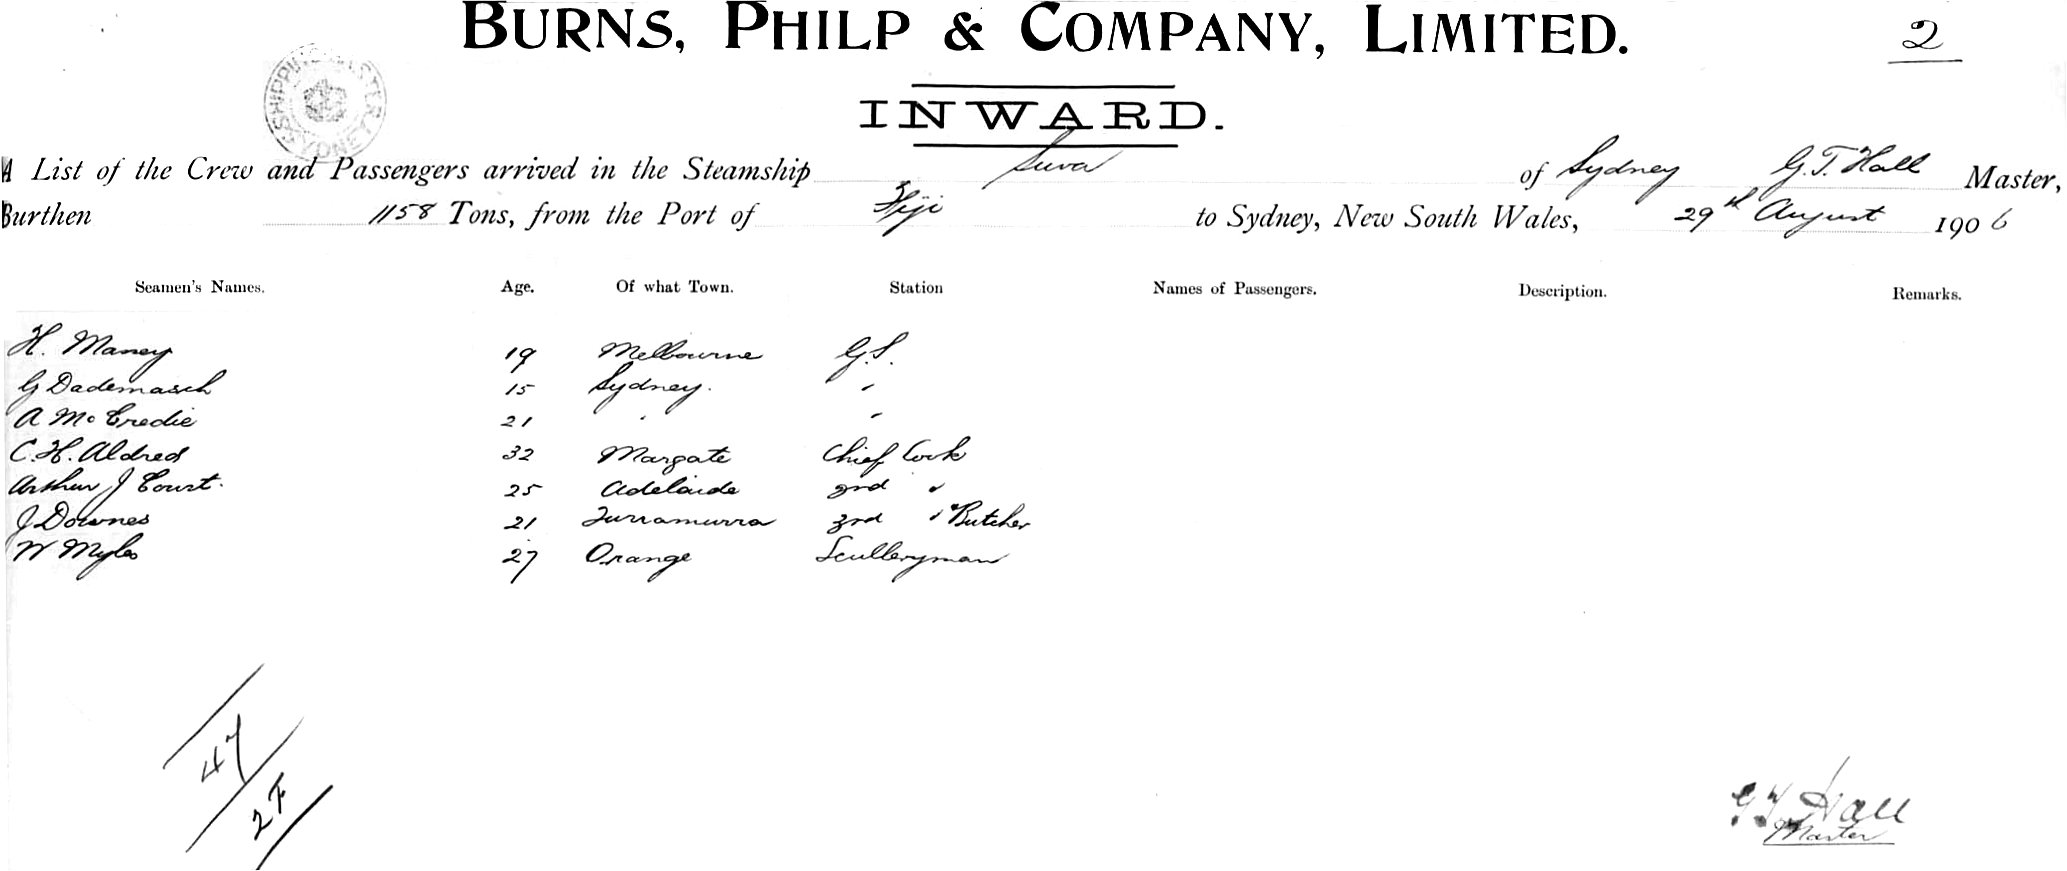 BURNS, PHILP & COMPANY, LIMITED. 2
SHIPPING MASTER SYDNEY
INWARD.
A List of the Crew and Passengers arrived in the Steamship Suva of Sydney G. T. Hall Master,
Burthen 1158 Tons, from the Port of Fiji to Sydney, New South Wales, 29th August 1906
Seamen's Names. Age. Of what Town. Station Names of Passengers. Description. Remarks.
H. Maney 19 Melbourne G.S.
G Dademasch 15 Sydney. "
A McCredie 21 " "
C. H. Aldred 32 Margate Chief Cook
Arthur J Court. 25 Adelaide 2nd "
J Downes 21 Turramurra 3rd " Butcher
W Myles 27 Orange Sculleryman
47
2F
G T Hall
Master